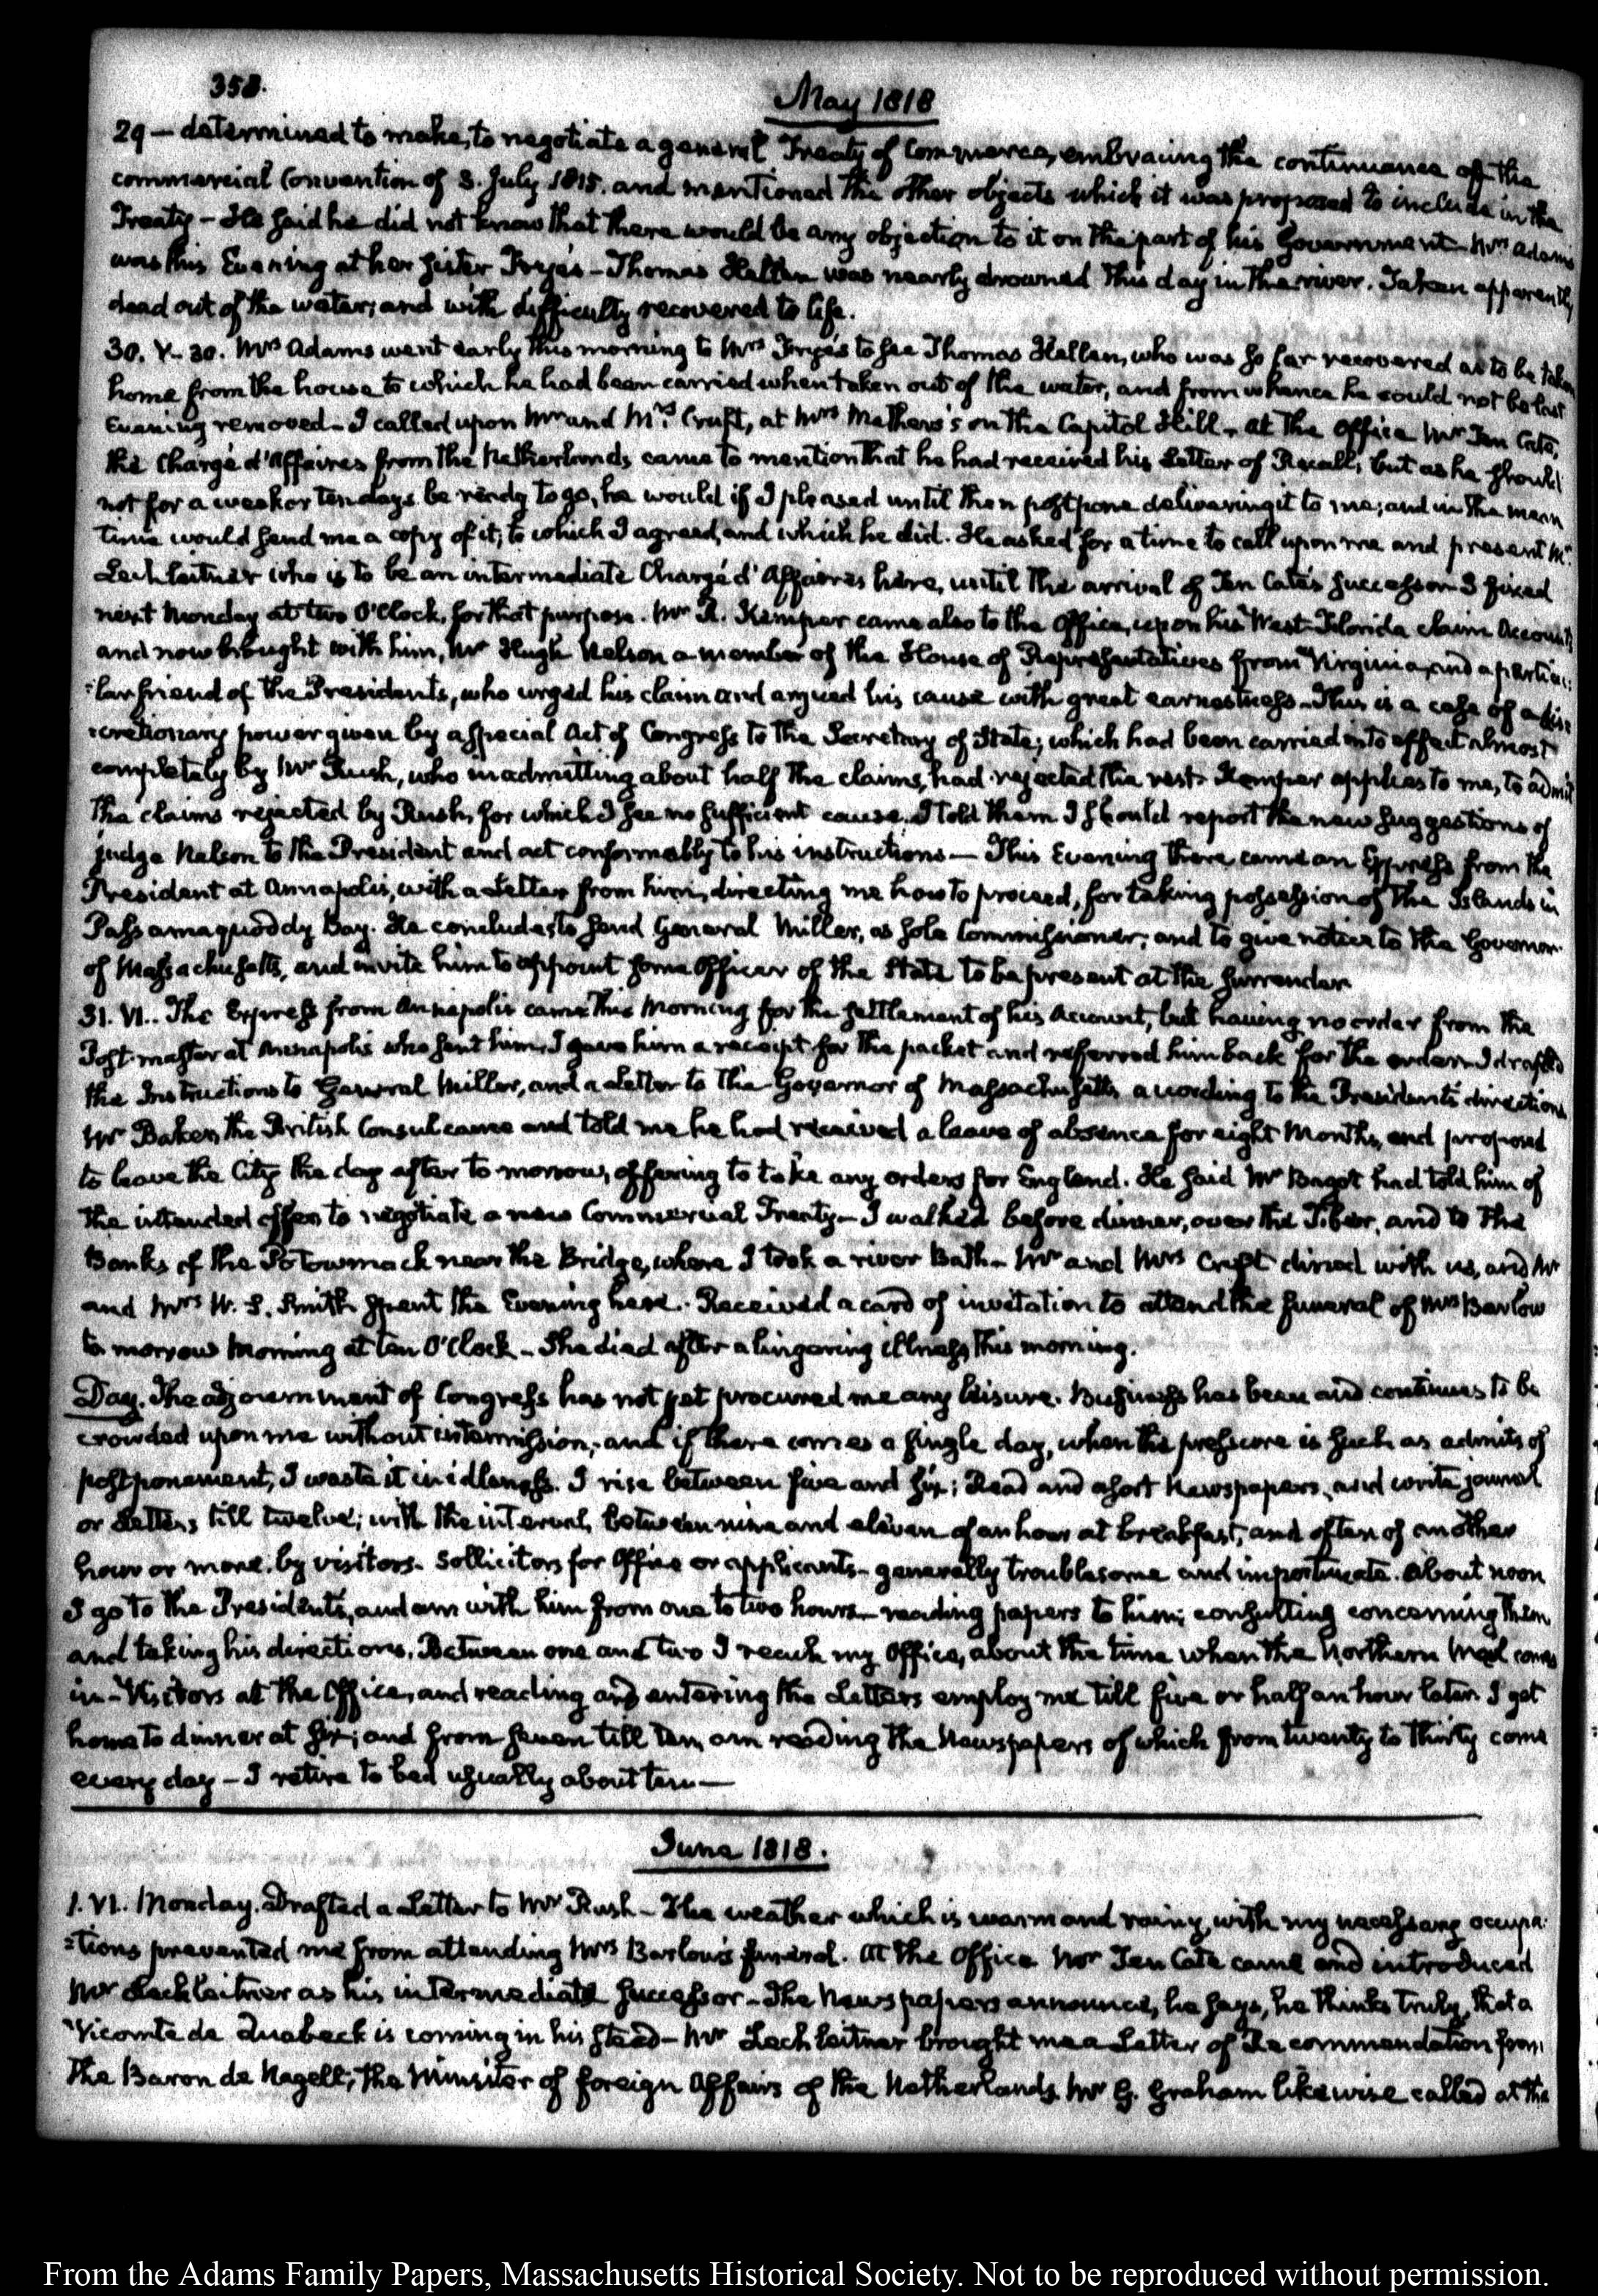 358.
May 1818
29 — determined to make, to negotiate a general Treaty of Commerce, embracing the continuance of the
commercial Convention of 3. July 1815. and mentioned the other objects which it was proposed to include in the
Treaty - He said he did not know that there would be any objection to it on the part of his Government - Mrs Adams
was this Evening at her Sister Frye's - Thomas Hellen was nearly drowned this day in the river. Taken apparently
dead out of the water; and with difficulty recovered to life.
30. V. 30. Mrs Adams went early this morning to Mrs Frye's to see Thomas Hellen, who was so far recovered as to be taken
home from the house to which he had been carried when taken out of the water, and from whence he could not be last
Evening removed - I called upon Mr and Mrs. Cruft, at Mrs Mathers's on the Capitol Hill - at the Office Mr Ten Cate,
the Chargé d'Affaires from the Netherlands came to mention that he had received his Letter of Recall; but as he should
not for a week or ten days be ready to go, he would if I pleased until then postpone delivering it to me; and in the mean
time would send me a copy of it; to which I agreed, and which he did. He asked for a time to call upon me and present Mr.
Lechleitner who is to be an intermediate Chargé d'Affaires here, until the arrival of Ten Cate's successor - I fixed
next Monday at two O'Clock, for that purpose. Mr R. Kemper came also to the Office, upon his West-Florida claim Accounts
and now brought with him, Mr Hugh Nelson a member of the House of Representatives from Virginia, and a particu:
:lar friend of the Presidents, who urged his claim and argued his cause with great earnestness - This is a case of a dis:
:cretionary power given by a special Act of Congress to the Secretary of State; which had been carried into effect almost
completely by Mr Rush, who in admitting about half the claims, had rejected the rest - Kemper applies to me, to admit
the claims rejected by Rush, for which I see no sufficient cause. I told them I should report the new suggestions of
judge Nelson to the President and act conformably to his instructions — This Evening there came an Express from the
President at Annapolis, with a Letter from him, directing me how to proceed, for taking possession of the Islands in
Passamaquoddy Bay. He concludes to send General Miller, as sole Commissioner; and to give notice to the Governor
of Massachusetts, and invite him to appoint some Officer of the State to be present at the surrender
31. VI.. The Express from Annapolis came this Morning for the settlement of his Account, but having no order from the
Post-master at Annapolis who sent him, I gave him a receipt for the packet and referred him back for the order - I drafted
the Instructions to General Miller, and a Letter to the Governor of Massachusetts according to the President's directions
Mr Baker, the British Consul came and told me he had received a leave of absence for eight Months, and proposed
to leave the City the day after to morrow, offering to take any orders for England. He said Mr Bagot had told him of
the intended offer to negotiate a new Commercial Treaty - I walked before dinner, over the Tiber, and to the
Banks of the Potowmack near the Bridge, where I took a river Bath - Mr and Mrs Cruft dined with us, and Mr
and Mrs W. S. Smith spent the Evening here. Received a card of invitation to attend the funeral of Mrs Barlow
to morrow Morning at ten O'Clock - She died after a lingering illness this morning.
Day. The adjournment of Congress has not yet procured me any leisure. Business has been and continues to be
crowded upon me without intermission; and if there comes a single day, when the pressure is such as admits of
postponement, I waste it in idleness. I rise between five and six; Read and assort Newspapers, and write journal
or Letters till twelve; with the interval between nine and eleven of an hour at breakfast, and often of another
hour or more by visitors - Sollicitors for Office or applicants - generally troublesome and importunate. About noon
I go to the Presidents, and am with him from one to two hours - reading papers to him; consulting concerning them
and taking his directions. Between one and two I reach my Office, about the time when the Northern Mail comes
in - Visitors at the Office, and reading and entering the Letters employ me till five or half an hour later. I get
home to dinner at six; and from seven till ten, am reading the Newspapers of which from twenty to thirty come
every day - I retire to bed usually about ten —
June 1818.
1. VI. Monday. Drafted a Letter to Mr Rush - The weather which is warm and rainy, with my necessary occupa:
:tions prevented me from attending Mrs Barlow's funeral. At the Office Mr Ten Cate came and introduced
Mr Lechleitner as his intermediate successor - The Newspapers announce, he says, he thinks truly, that a
Vicomte de Quabeck is coming in his stead - Mr Lechleitner brought me a Letter of Recommendation from
the Baron de Nagell, the Minister of foreign Affairs of the Netherlands. Mr G. Graham likewise called at the
From the Adams Family Papers, Massachusetts Historical Society. Not to be reproduced without permission.